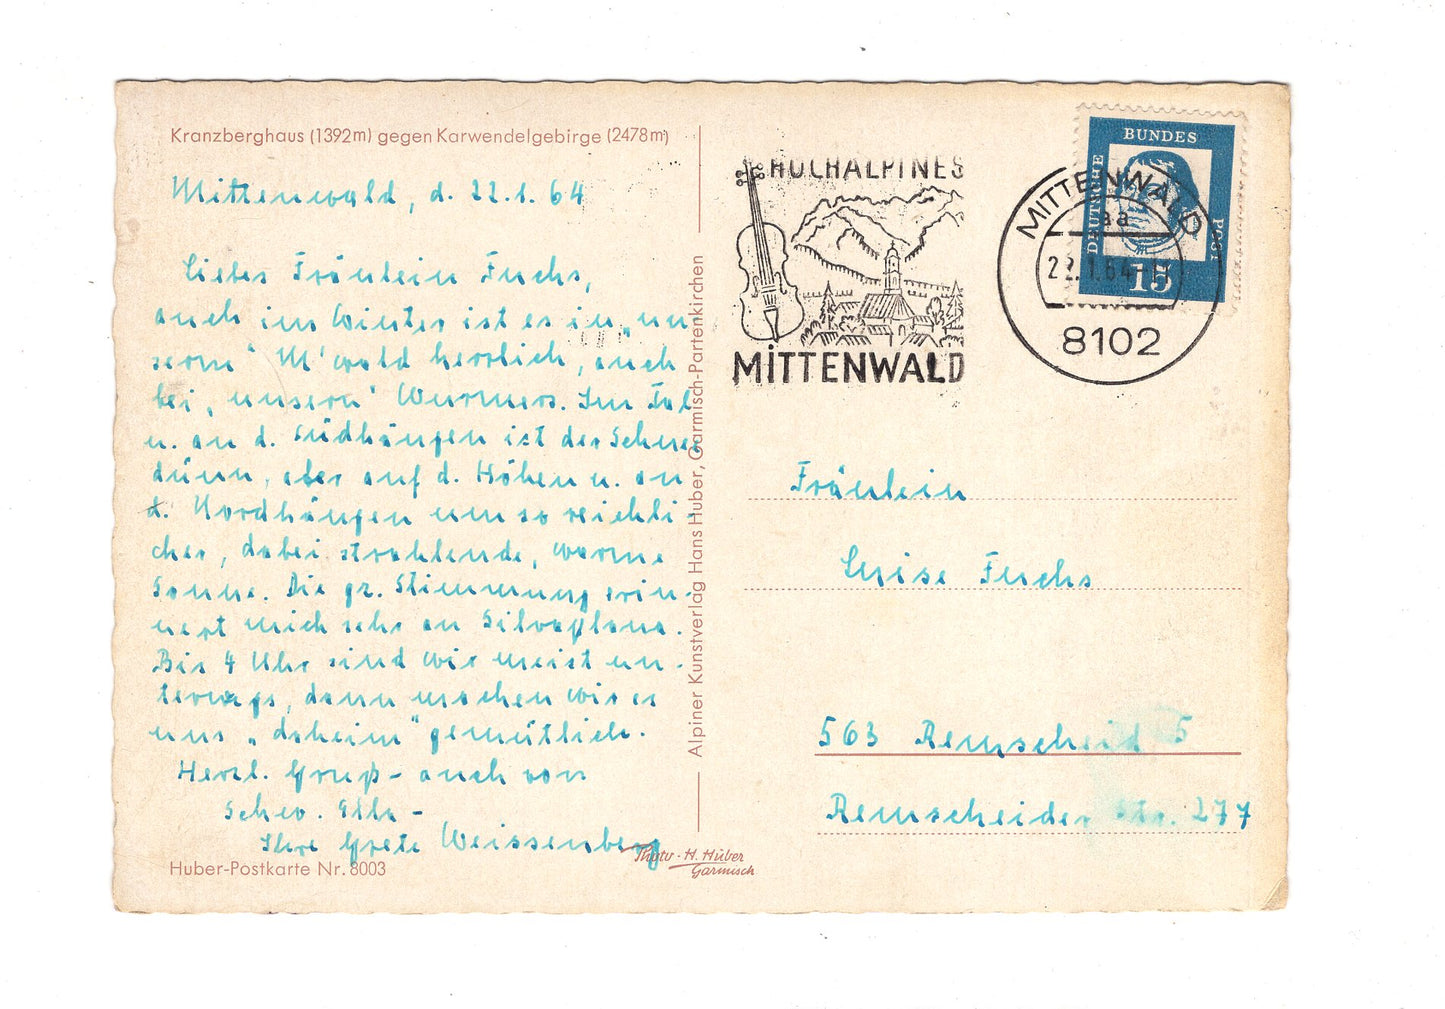 Kranzberghaus (1392m) gegen Karwendelgebirge (2478m)
Mittenwald, d. 22.1.64
Liebes Fräulein Fuchs,
auch im Winter ist es in „un-
serm" M'wald herrlich, auch
bei „unsern" Wurmers. Im Tal
u. an d. Südhängen ist der Schnee
dünn, aber auf d. Höhen u. an
d. Nordhängen um so reichli-
cher, dabei strahlende, warme
Sonne. Die gr. Stimmung erin-
nert mich sehr an Silvaplana.
Bis 4 Uhr sind wir meist un-
terwegs, dann machen wir es
uns „daheim" gemütlich.
Herzl. Gruß - auch von
Schw. Ella -
Ihre Grete Weissenberg
Huber-Postkarte Nr. 8003
Photo - H. Huber
Garmisch
Alpiner Kunstverlag Hans Huber, Garmisch-Partenkirchen
HOCHALPINES
MiTTENWALD
MITTENWALD
aa
22.1.64
8102
DEUTSCHE
BUNDES
POST
15
Fräulein
Luise Fuchs
563 Remscheid 5
Remscheider Str. 277